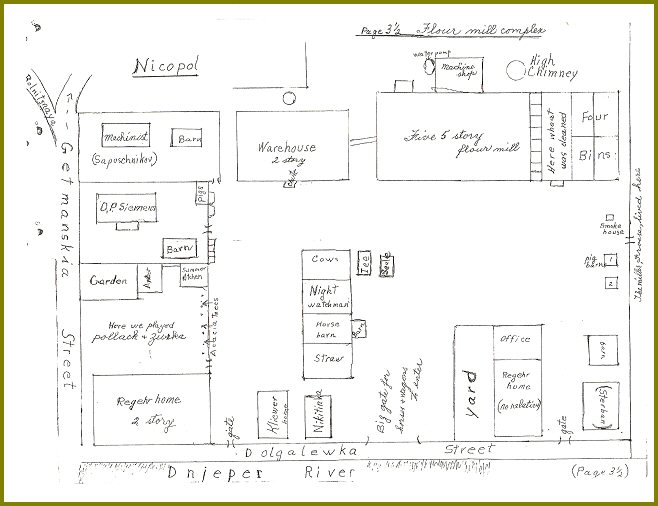 Page 3½ Flour mill complex
Nicopol
water pump
machine shop
High
Chimney
Getmanskia Street
Machinist
(Sapuschnikov)
Barn
Warehouse
2 story
Five 5 story
flour mill
Here wheat
was cleaned
Four
Bins
D.P. Siemens
Pigs
Barn
Smoke
house
pig
barns
1
2
Garden
Summer
Kitchen
Acacia Trees
Here we played
pollack + zurka
Cows
Night
watchman
Horse
barn
Straw
Ice
Scale
Barn
Regehr home
2 story
gate
Kliewer
house
Nikitinka
Big gate for
horses + wagons
to enter
yard
Office
Regehr
home
(no relation)
gate
barn
Dolgalewka Street
Dnjeper River
(Page 3½)